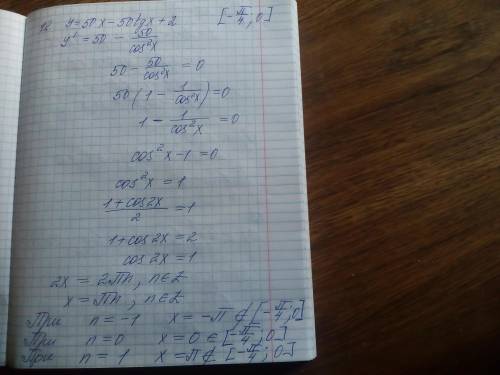 12 y = 50x - 50tgx + 2 [-π/4; 0]
y' = 50 - 50/cos²x
50 - 50/cos²x = 0
50(1 - 1/cos²x) = 0
1 - 1/cos²x = 0
cos²x - 1 = 0
cos²x = 1
(1 + cos2x)/2 = 1
1 + cos2x = 2
cos2x = 1
2x = 2πn, n∈Z
x = πn, n∈Z
При n = -1 x = -π ∉ [-π/4; 0]
При n = 0 x = 0 ∈ [-π/4; 0]
При n = 1 x = π ∉ [-π/4; 0]